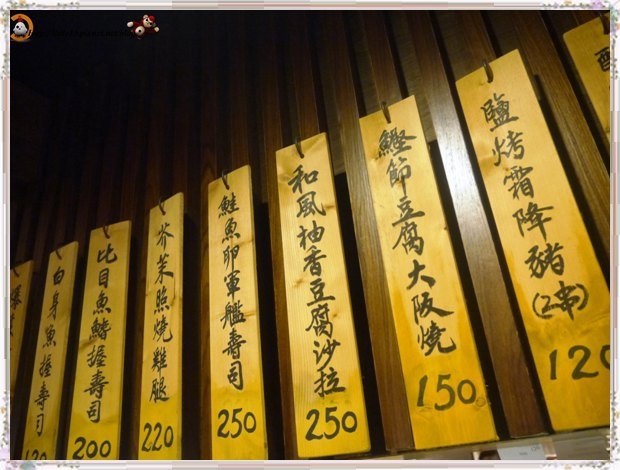 鹽烤霜降豬
(2串)
120
鰹節豆腐大阪燒
150
和風柚香豆腐沙拉
250
鮭魚卵軍艦壽司
250
芥茉照燒雞腿
220
比目魚鰭握壽司
200
白身魚握壽司
120